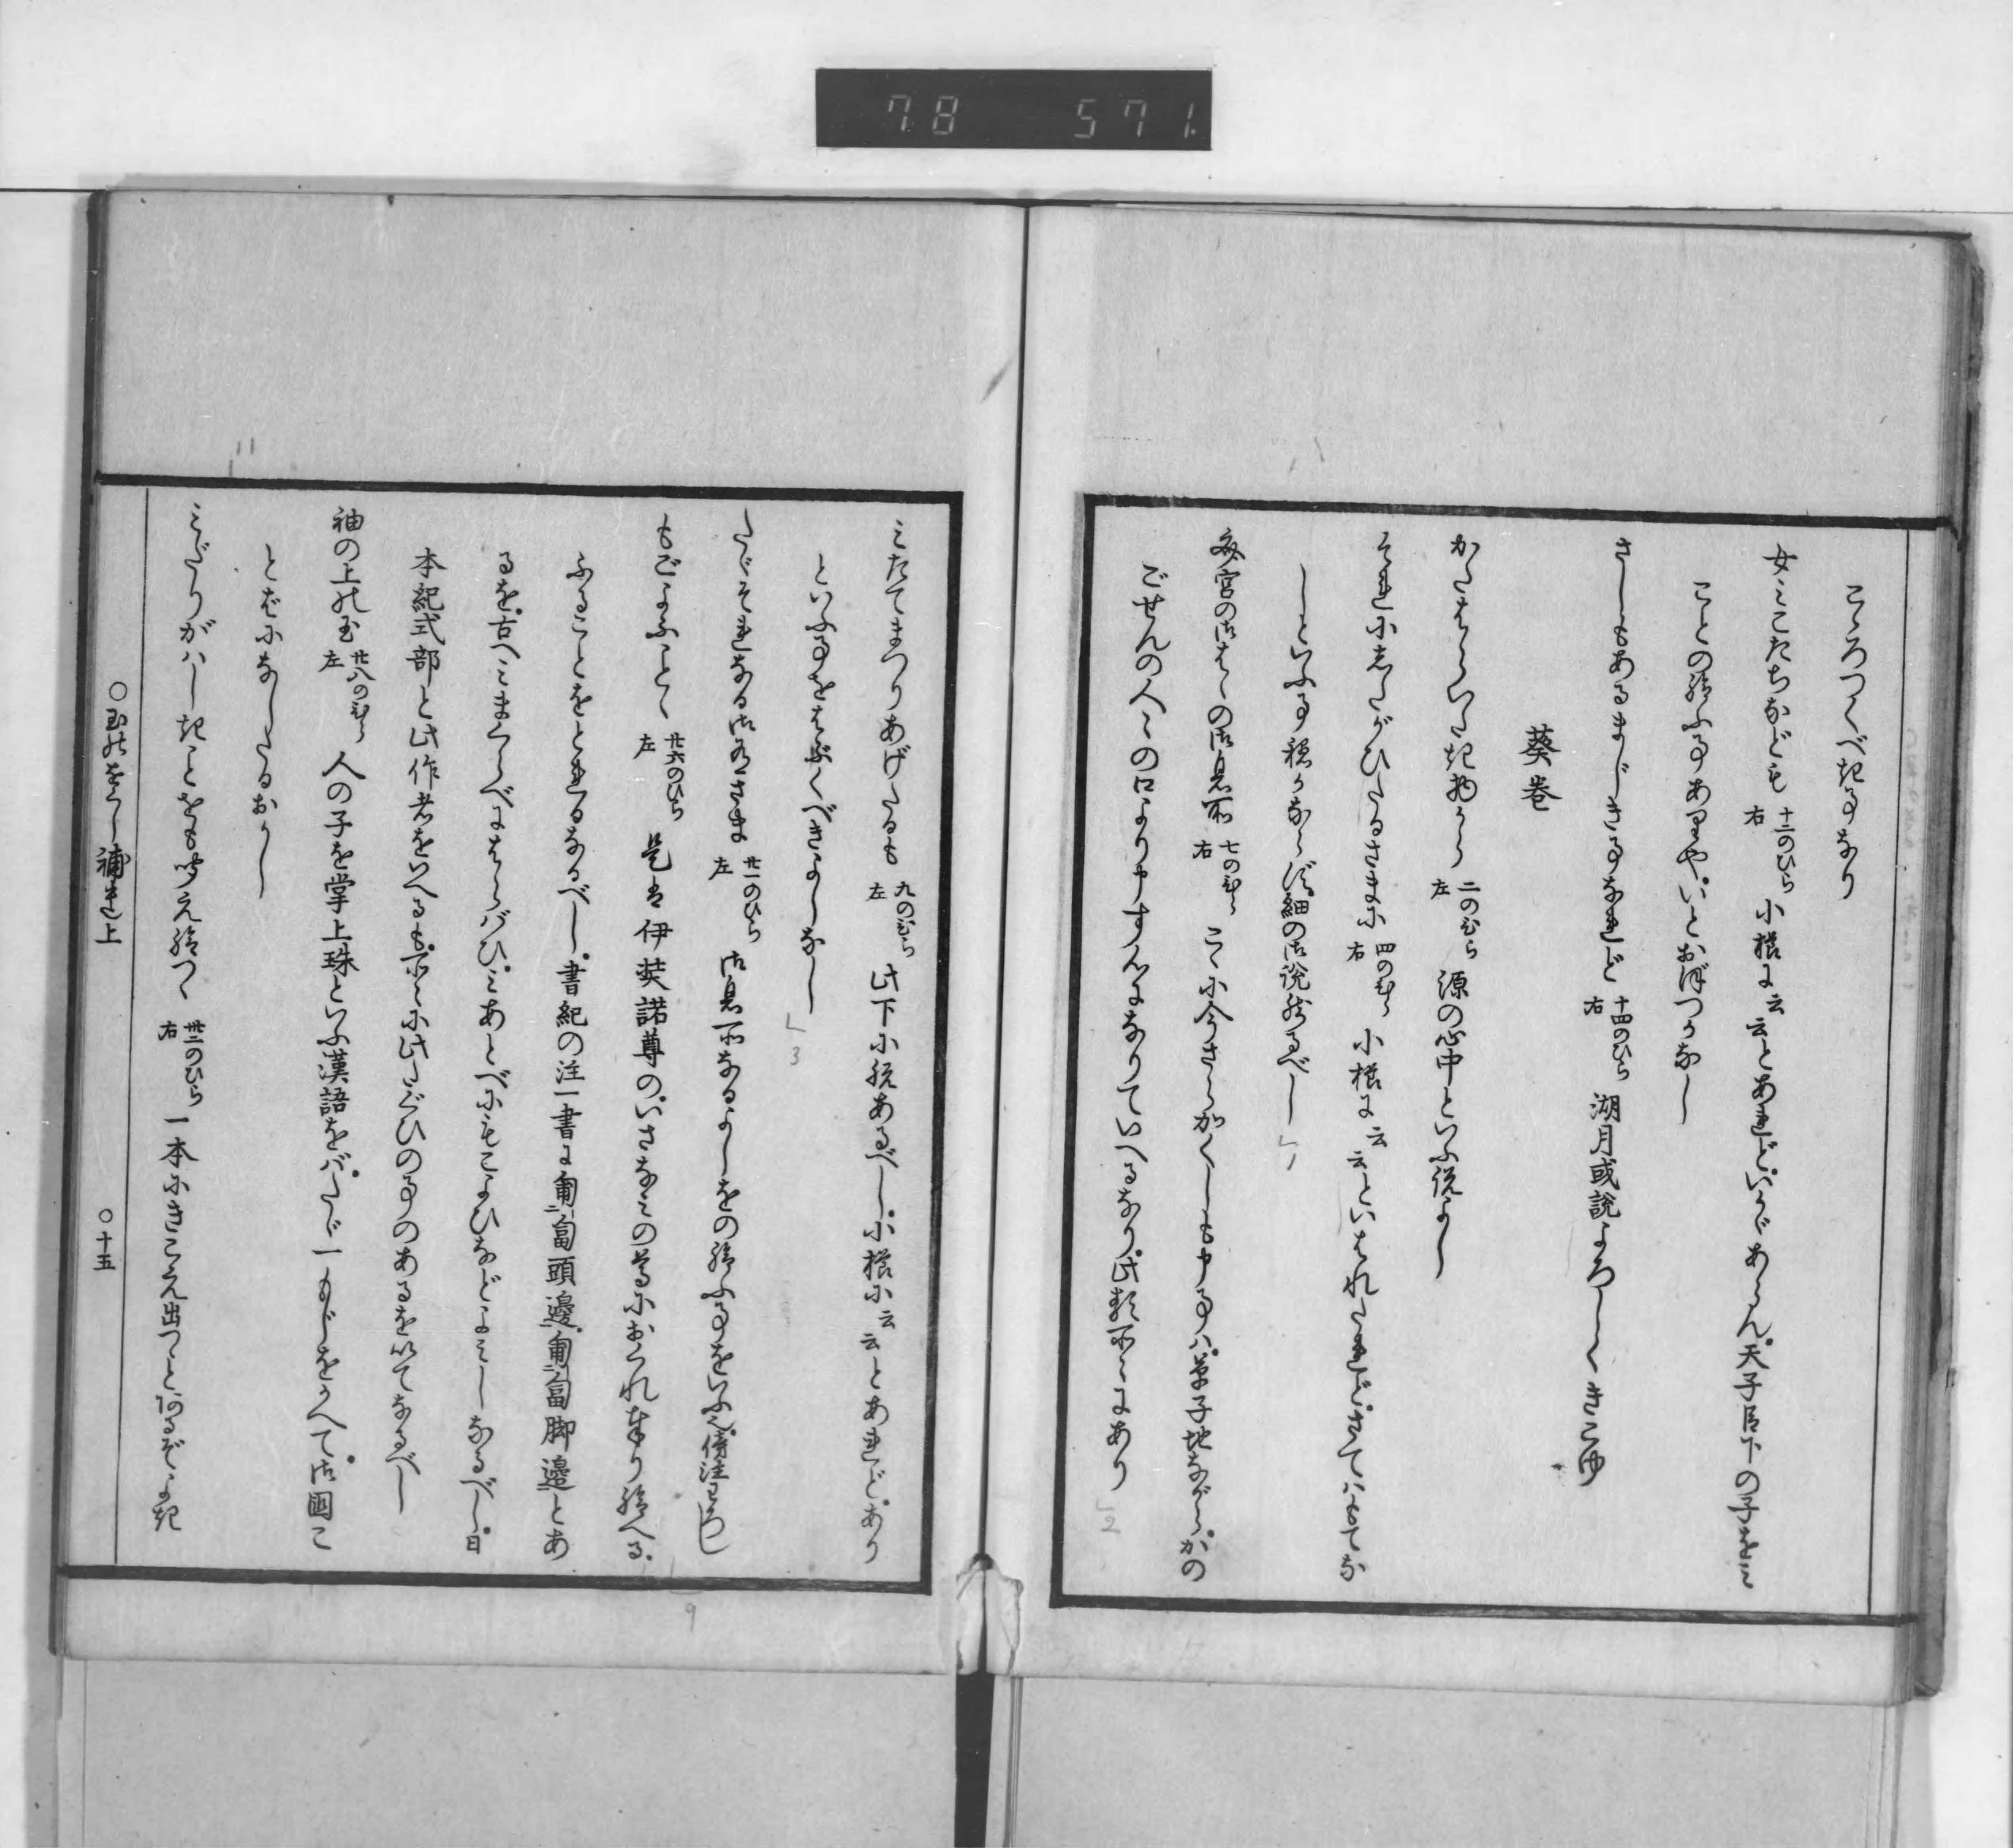 78 571.
こゝろつくべき事なり
女みこたちなども 十二のひら右 小櫛に云云とあれど。いかゞあらん。天子臣下の子をみ
ことの給ふ事ありや。いとおぼつかなし
さしもあるまじき事なれど 十四のひら右 湖月或説よろしくきこゆ
葵巻
かたはらいたき物から 二のひら左 源の心中といふ説よし
それにしたがひたるさまに 四のひら右 小櫛に云云といはれたれど。さてハもてな
しといふ事穏かならず。細の御説然るべし
斎宮の御はゝの御息所 七のひら右 こゝに今さらかくしも申す事ハ。草子地ながら。かの
ごせんの人々の口より申す心になりていへるなり。此類所々にあり
みたてまつりあげたるも 九のひら左 此下に脱あるべし。小櫛に云云とあれど。あり
といふ事をはぶくべきよしなし
たゞそれなる御有さま 廿一のひら左 御息所なるよしをの給ふ事をいふ也。傍注わろし
もごよふこと〱 廿六のひら左 是は伊弉諾尊の。いさなみの尊におくれ奉り給へる。
ふることをとれるなるべし。書紀の注一書に匍匐頭邊。匍匐脚邊とあ
るを。古へみまくらべにはらバひ。みあとべにもこよひなどよみしなるべし。日
本紀式部と此作者をいへるも。所々に此たぐひの事のあるを以てなるべし
袖の上の玉 廿八のひら左 人の子を掌上珠といふ漢語をバ。たゞ一もじをかへて。御国こ
とばになしたるおかし
みだりがハしきことをも聞え給つゝ 卅二のひら右 一本にきこえ出つゝとあるぞよき
○玉のをくし補遺上 ○十五